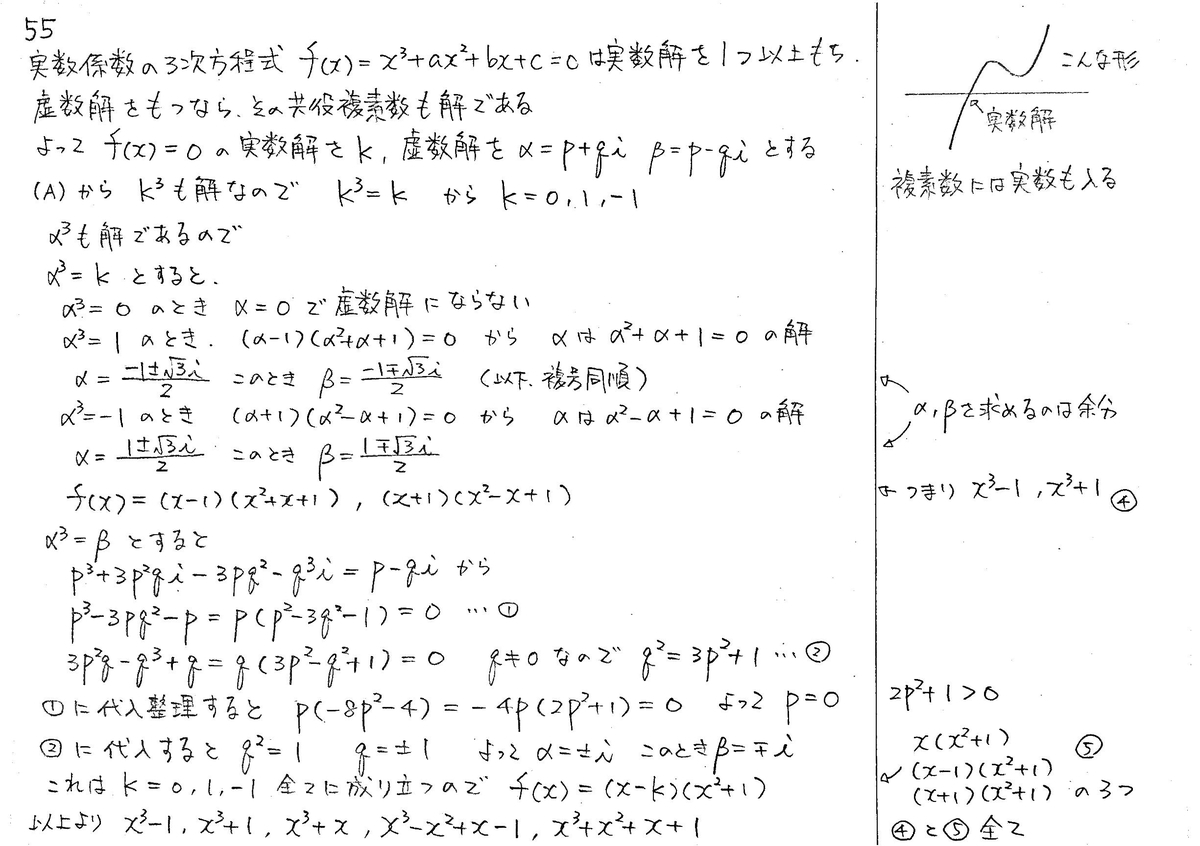 55
実数係数の3次方程式 f(x)=x³+ax²+bx+c=0は実数解を1つ以上もち.
虚数解をもつなら、その共役複素数も解である
よって f(x)=0 の実数解をk, 虚数解を α=p+qi β=p-qi とする
(A)から k³も解なので k³=k から k=0,1,-1
α³も解であるので
α³=k とすると.
α³=0 のとき α=0 で虚数解にならない
α³=1 のとき. (α-1)(α²+α+1)=0 から αはα²+α+1=0 の解
α=(-1±√3i)/2 このとき β=(-1∓√3i)/2 (以下、複号同順)
α³=-1 のとき (α+1)(α²-α+1)=0 から αはα²-α+1=0 の解
α=(1±√3i)/2 このとき β=(1∓√3i)/2
f(x)=(x-1)(x²+x+1), (x+1)(x²-x+1)
α³=β とすると
p³+3p²qi-3pq²-q³i=p-qi から
p³-3pq²-p=p(p²-3q²-1)=0 …①
3p²q-q³+q=q(3p²-q²+1)=0 q≠0なので q²=3p²+1 …②
①に代入整理すると p(-8p²-4)=-4p(2p²+1)=0 よって p=0
②に代入すると q²=1 q=±1 よって α=±i このときβ=∓i
これは k=0,1,-1 全てに成り立つので f(x)=(x-k)(x²+1)
以上より x³-1, x³+1, x³+x, x³-x²+x-1, x³+x²+x+1
こんな形
実数解
複素数には実数も入る
α,βを求めるのは余分
つまり x³-1, x³+1 ④
2p²+1>0
x(x²+1) ⑤
(x-1)(x²+1)
(x+1)(x²+1) の3つ
④と⑤全て